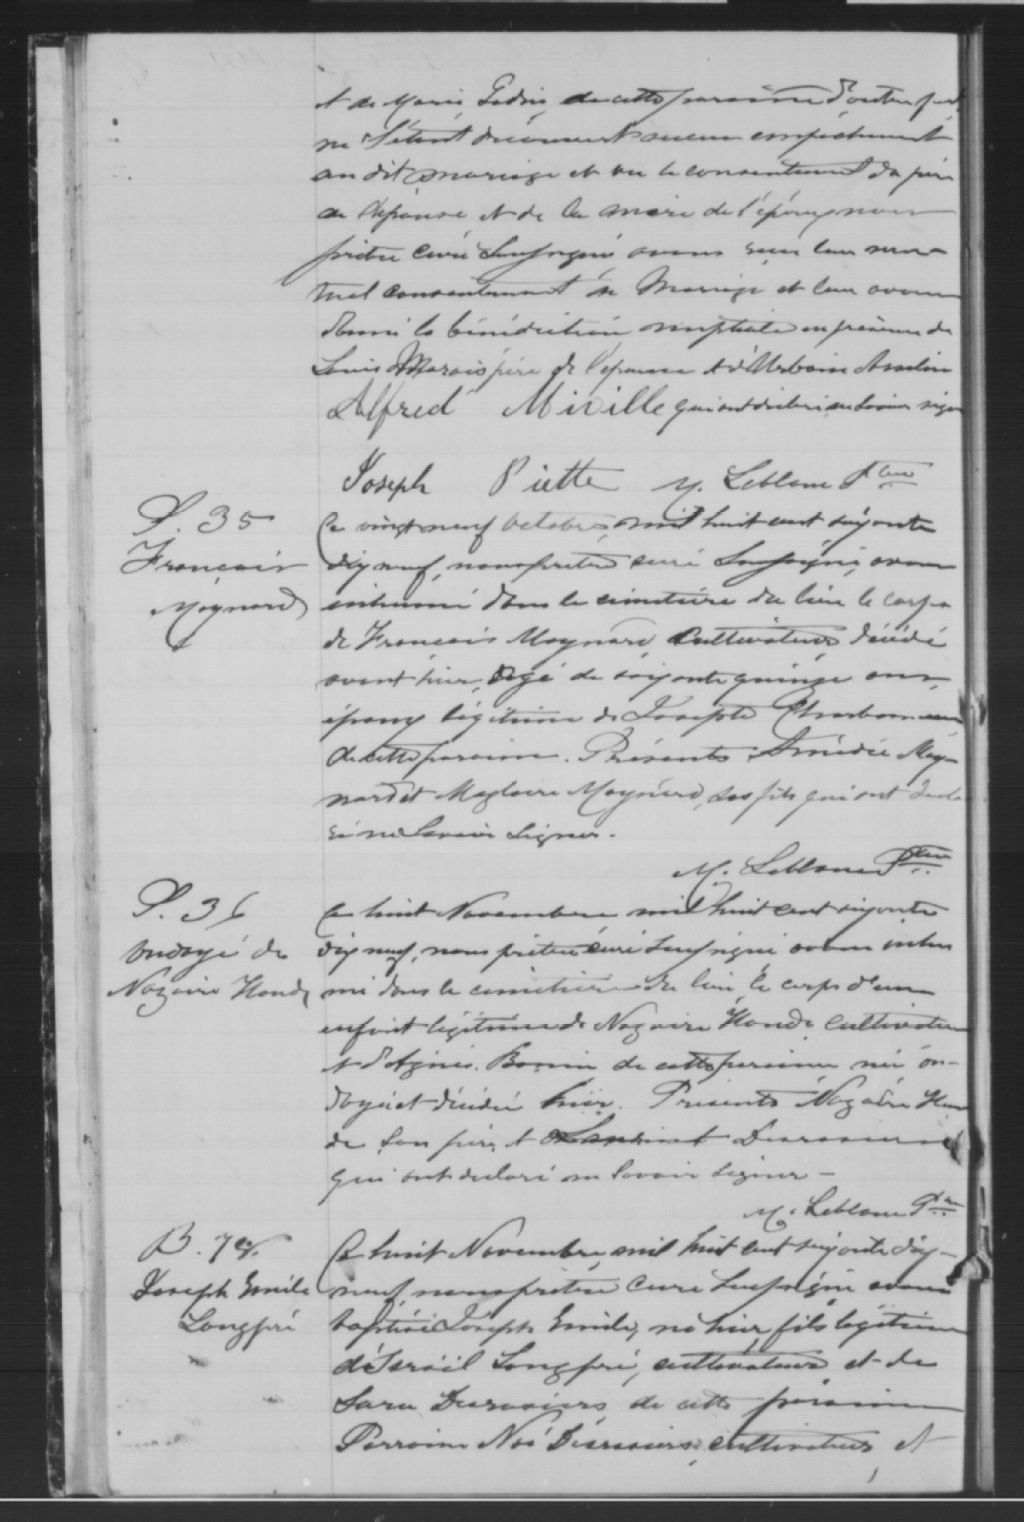 et de Marie Godin de cette paroisse d'autre part
ne s'étant découvert aucun empêchement
au dit mariage et vu le consentement du père
de l'épouse et de la mère de l'époux nous
prêtre curé soussigné avons reçu leur mu-
tuel consentement de Mariage et leur avons
donné la bénédiction nuptiale en présence de
Louis Marois père de l'épouse et d'Urbain Asselin
Alfred Miville qui ont déclaré ne savoir signer
Joseph Piette M. Leblanc Ptre
S. 35
François
Maynard
Ce vingt neuf octobre, mil huit cent soixante
dix neuf, nous prêtre curé soussigné, avons
inhumé dans le cimetière du lieu le corps
de François Maynard, Cultivateur, décédé
avant hier, âgé de soixante quinze ans,
époux légitime de Josephte Charbonneau
de cette paroisse. Présents Amédée May-
nard et Magloire Maynard, ses fils qui ont décla-
ré ne savoir signer.
M. Leblanc Ptre
S. 36
Ondoyé de
Nazaire Houde
Ce huit Novembre mil huit cent soixante
dix neuf, nous prêtre curé soussigné avons inhu
mé dans le cimetière du lieu le corps d'un
enfant légitime de Nazaire Houde cultivateur
et d'Agnès Bonin de cette paroisse né on-
doyé et décédé hier. Présents Nazaire Hou
de son père et Desrosiers
qui ont déclaré ne savoir signer -
M. Leblanc Ptre
B.
Joseph Emile
Longpré
Ce huit Novembre, mil huit cent soixante dix-
neuf nous prêtre curé soussigné avons
baptisé Joseph Emile, né hier, fils légitime
d'Israël Longpré, cultivateur et de
Sara Desrosiers de cette paroisse
Parrain Noé Desrosiers, cultivateur, et